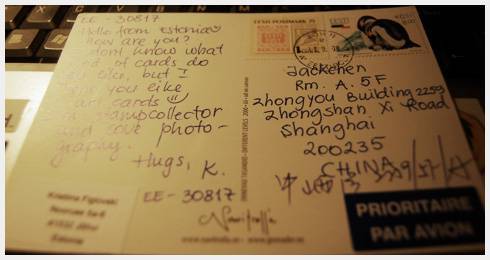 EE - 30817
Hello from Estonia
How are you?
I dont know what
kind of cards do
you like, but I
hope you like
cards
stampcollector
and love photo-
graphy.
Hugs, K.
EE - 30817
EESTI POSTIMARK 75
EESTI
Jackchen
Rm. A. 5F
Zhongyou Building 2259
Zhongshan Xi Road
Shanghai
200235
CHINA
PRIORITAIRE
PAR AVION
Estonia